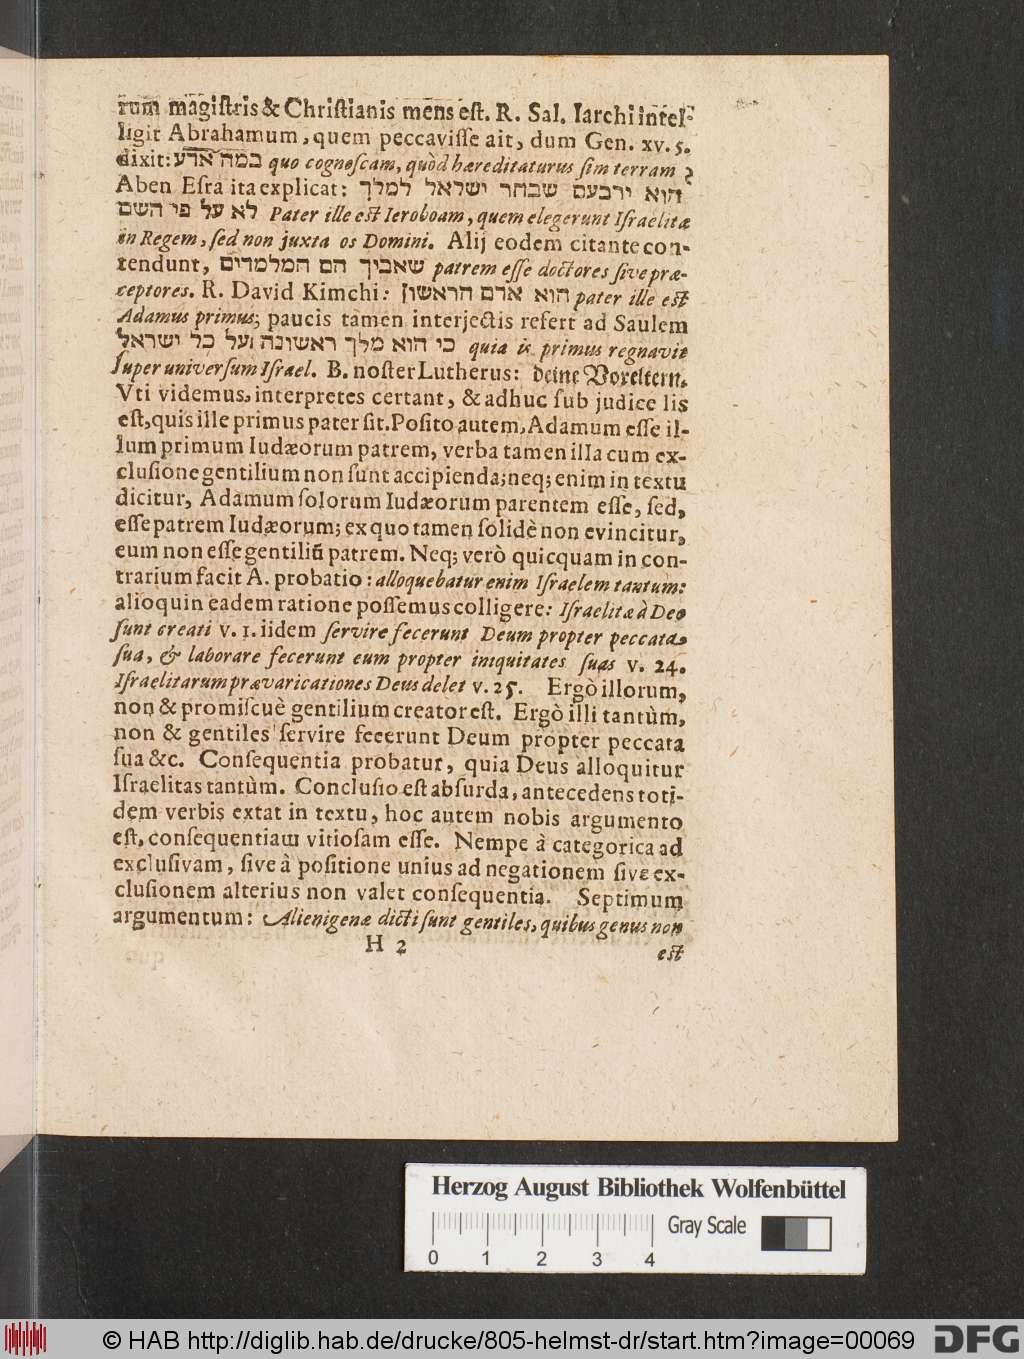 rum magiſtris & Chriſtianis mens eſt. R. Sal. Iarchi intel-
ligit Abrahamum, quem peccaviſſe ait, dum Gen. xv. 5.
dixit: במה אדע quo cognoſcam, quòd hæreditaturus ſim terram?
Aben Eſra ita explicat: הוא ירבעם שבחר ישראל למלך
לא על פי השם Pater ille eſt Ieroboam, quem elegerunt Iſraelitæ
in Regem, ſed non juxta os Domini. Alij eodem citante con-
tendunt, שאביך הם המלמדים patrem eſſe doctores ſive præ-
ceptores. R. David Kimchi: הוא אדם הראשון pater ille eſt
Adamus primus; paucis tamen interjectis refert ad Saulem
כי הוא מלך ראשונה על כל ישראל quia is primus regnavit
ſuper univerſum Iſrael. B. noſter Lutherus: deine Voreltern.
Vti videmus, interpretes certant, & adhuc ſub judice lis
eſt, quis ille primus pater ſit. Poſito autem, Adamum eſſe il-
lum primum Iudæorum patrem, verba tamen illa cum ex-
cluſione gentilium non ſunt accipienda; neq; enim in textu
dicitur, Adamum ſolorum Iudæorum parentem eſſe, ſed,
eſſe patrem Iudæorum; ex quo tamen ſolidè non evincitur,
eum non eſſe gentiliũ patrem. Neq; verò quicquam in con-
trarium facit A. probatio: alloquebatur enim Iſraelem tantum:
alioquin eadem ratione poſſemus colligere: Iſraelitæ à Deo
ſunt creati v. 1. iidem ſervire fecerunt Deum propter peccata
ſua, & laborare fecerunt eum propter iniquitates ſuas v. 24.
Iſraelitarum prævaricationes Deus delet v. 25. Ergò illorum,
non & promiſcuè gentilium creator eſt. Ergò illi tantùm,
non & gentiles ſervire fecerunt Deum propter peccata
ſua &c. Conſequentia probatur, quia Deus alloquitur
Iſraelitas tantùm. Concluſio eſt abſurda, antecedens toti-
dem verbis extat in textu, hoc autem nobis argumento
eſt, conſequentiam vitioſam eſſe. Nempe à categorica ad
excluſivam, ſive à poſitione unius ad negationem ſive ex-
cluſionem alterius non valet conſequentia. Septimum
argumentum: Alienigenæ dicti ſunt gentiles, quibus genus non
H 2
eſt
Herzog August Bibliothek Wolfenbüttel
Gray Scale
0 1 2 3 4
© HAB http://diglib.hab.de/drucke/805-helmst-dr/start.htm?image=00069
DFG